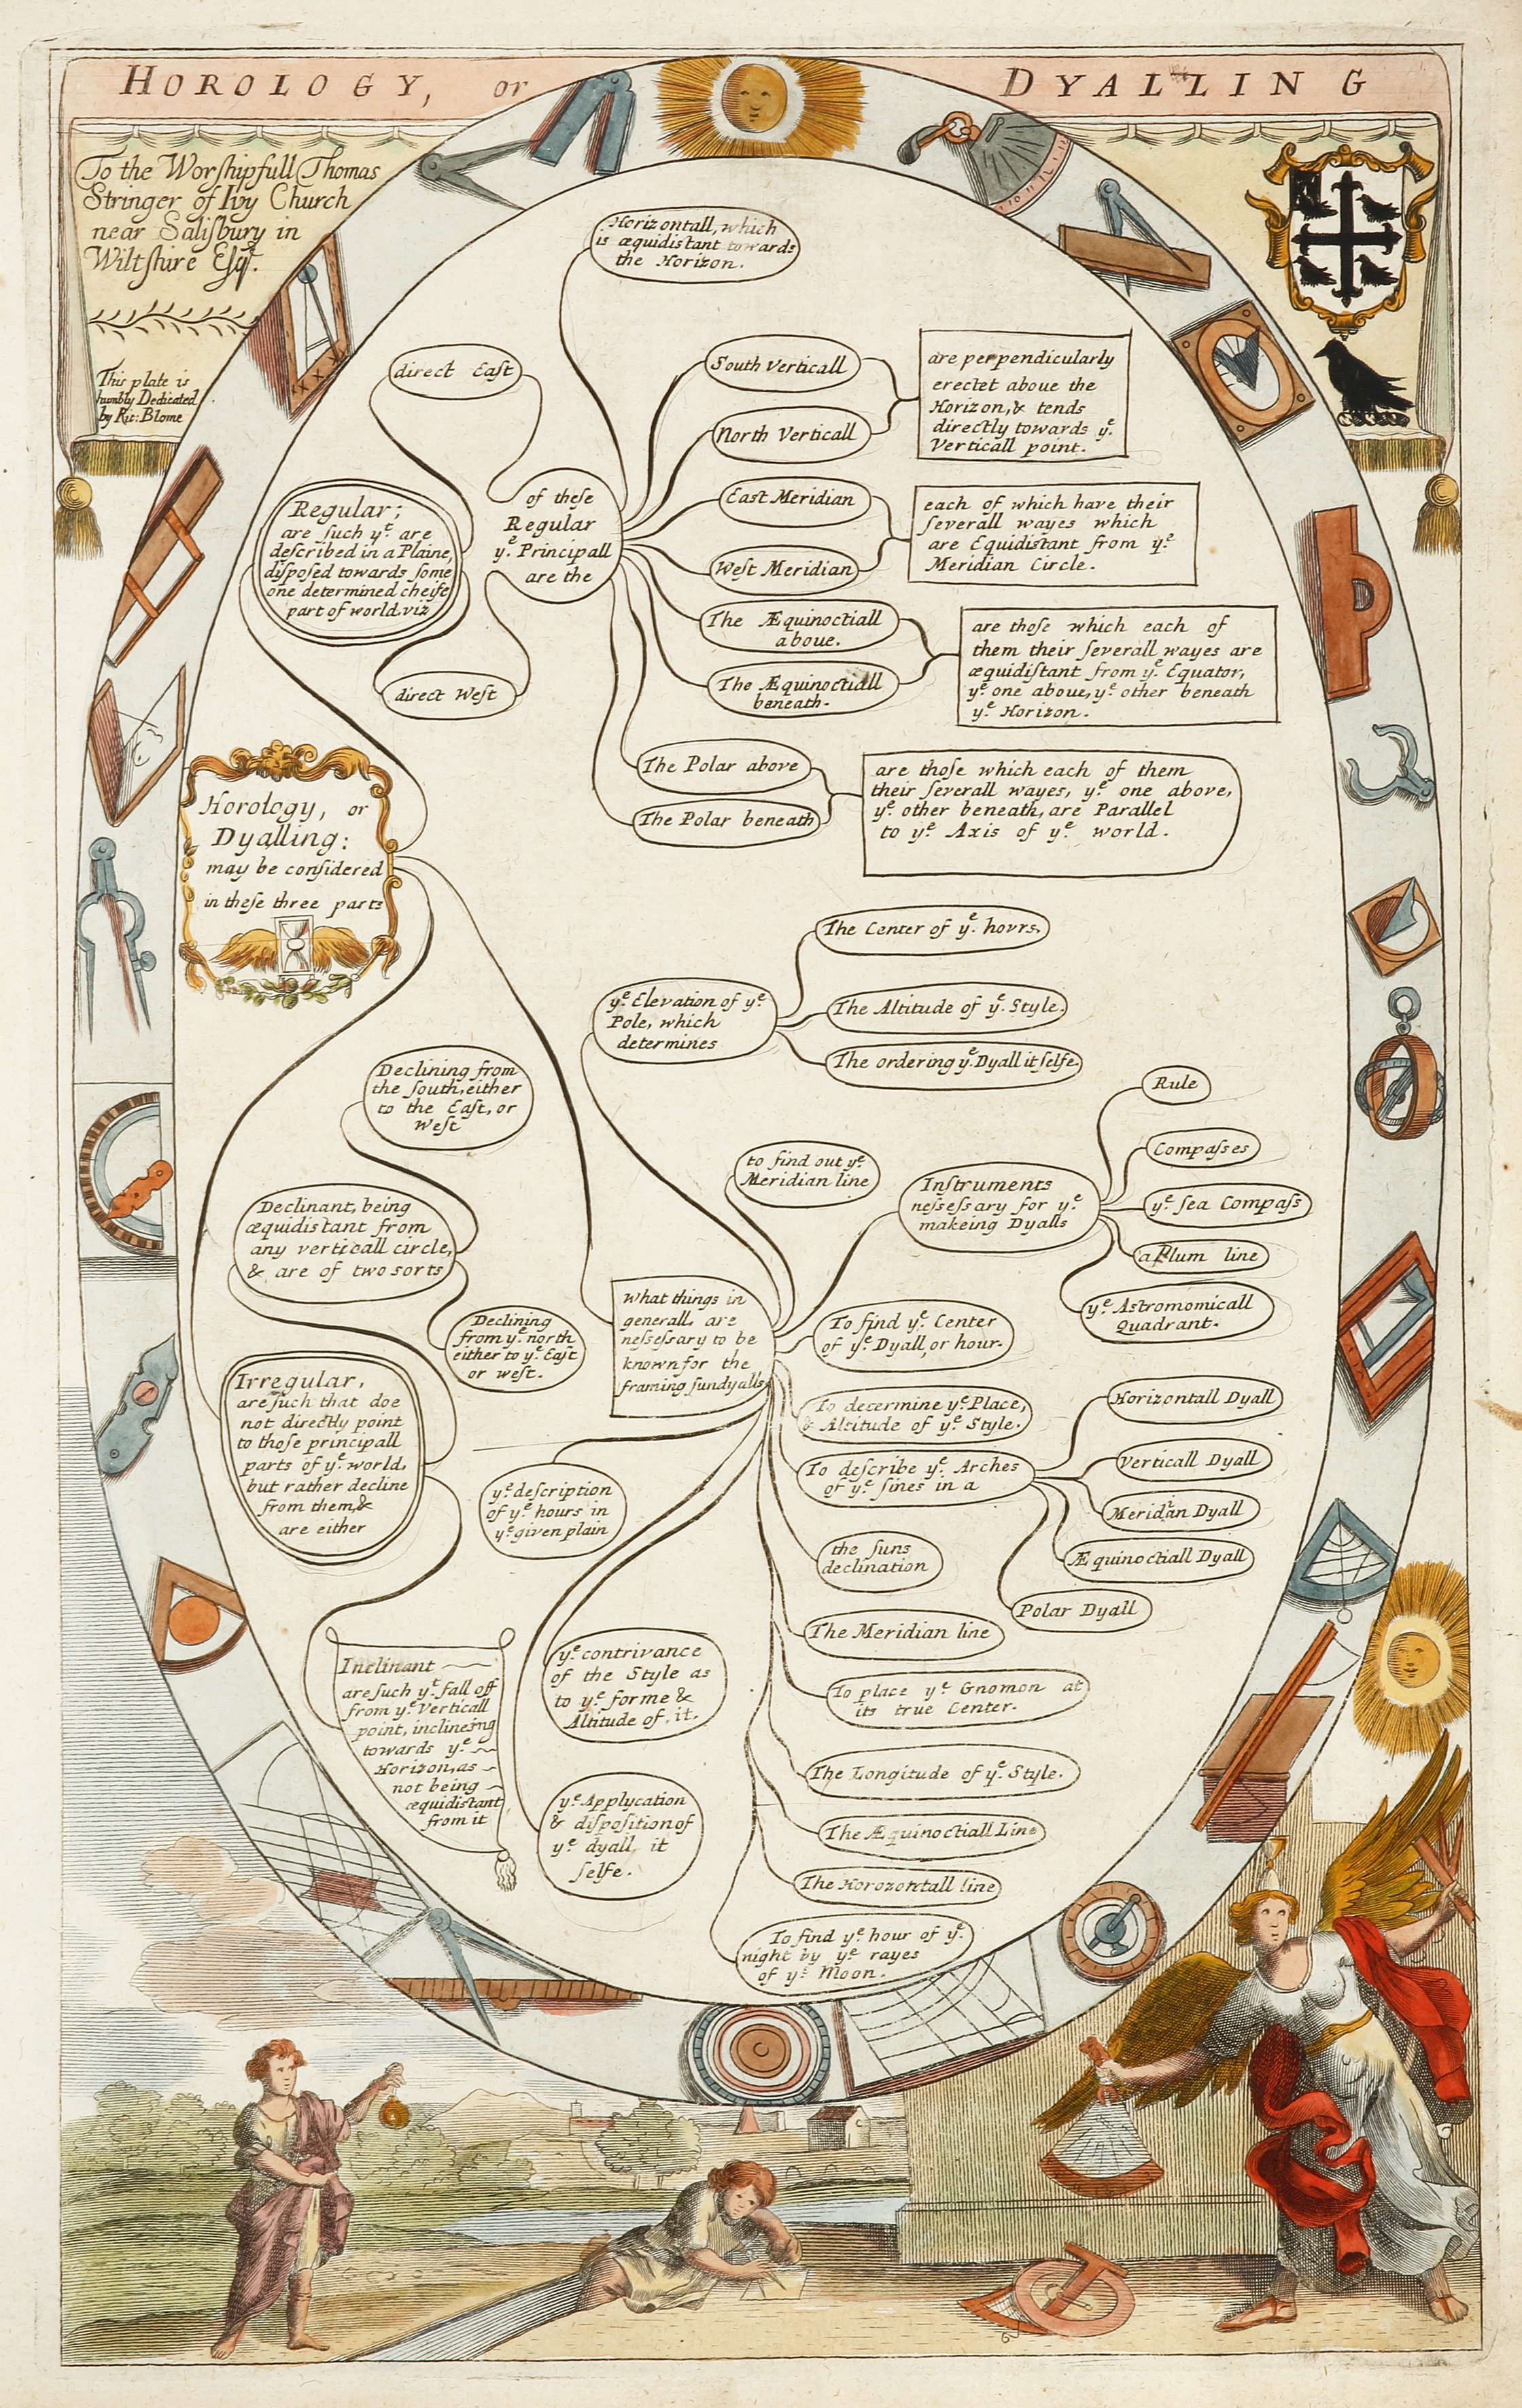 HOROLOGY, or DYALLING
To the Worshipfull Thomas
Stringer of Ivy Church
near Salisbury in
Wiltshire Esqr.
This plate is
humbly Dedicated
by Ric: Blome
Horizontall, which
is æquidistant towards
the Horizon.
direct East
South Verticall
North Verticall
are perpendicularly
erectet aboue the
Horizon, & tends
directly towards ye.
Verticall point.
Regular;
are such yt. are
described in a Plaine,
disposed towards some
one determined cheife
part of world. viz
of these
Regular
ye. Principall
are the
East Meridian
West Meridian
each of which have their
severall wayes which
are Equidistant from ye.
Meridian Circle.
The Æquinoctiall
aboue.
The Æquinoctiall
beneath.
are those which each of
them their severall wayes are
æquidistant from ye. Equator,
ye. one aboue, ye. other beneath
ye. Horizon.
direct West
The Polar above
The Polar beneath
are those which each of them
their severall wayes, ye. one above,
ye. other beneath, are Parallel
to ye. Axis of ye. world.
Horology, or
Dyalling:
may be considered
in these three parts
ye. Elevation of ye.
Pole, which
determines
The Center of ye. hovrs.
The Altitude of ye. Style.
The ordering ye. Dyall it selfe.
Declining from
the south, either
to the East, or
West
to find out ye.
Meridian line
Instruments
nessessary for ye.
makeing Dyalls
Rule
Compasses
ye. sea Compass
a Plum line
ye. Astromomicall
Quadrant.
Declinant, being
æquidistant from
any verticall circle,
& are of two sorts
Declining
from ye. north
either to ye. East
or west.
What things in
generall, are
nessessary to be
known for the
framing sundyalls
To find ye. Center
of ye. Dyall, or hour.
To determine ye. Place,
& Altitude of ye. Style.
To describe ye. Arches
of ye. sines in a
Horizontall Dyall
Verticall Dyall
Meridian Dyall
Æquinoctiall Dyall
Polar Dyall
Irregular,
are such that doe
not directly point
to those principall
parts of ye. world,
but rather decline
from them, &
are either
ye. description
of ye. hours in
ye. given plain
the suns
declination
The Meridian line
Inclinant
are such yt. fall off
from ye. Verticall
point, inclineing
towards ye.
Horizon, as
not being
æquidistant
from it
ye. contrivance
of the Style as
to ye. forme &
Altitude of it.
To place ye. Gnomon at
its true Center.
The Longitude of ye. Style.
ye. Applycation
& disposition of
ye. dyall it
selfe.
The Æquinoctiall Line
The Horozontall line
To find ye. hour of ye.
night by ye. rayes
of ye. Moon.